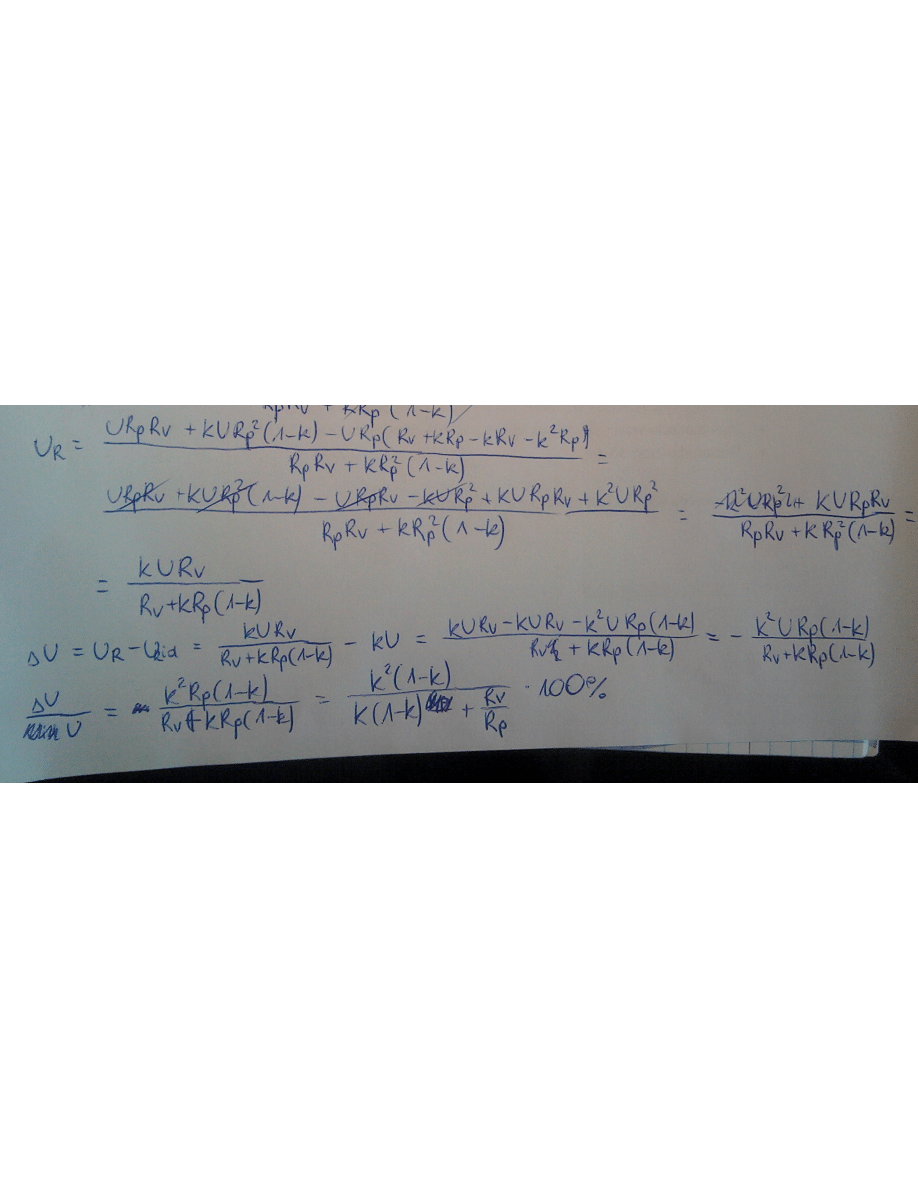 RpRv + kRp(1-k)
U_R = \frac{URpRv + kURp^2(1-k) - URp(Rv + kRp - kRv - k^2Rp)}{RpRv + kRp^2(1-k)} =
\frac{URpRv + kURp^2(1-k) - URpRv - kURp^2 + kURpRv + k^2URp^2}{RpRv + kRp^2(1-k)} = \frac{-k^2URp^2 + kURpRv}{RpRv + kRp^2(1-k)} =
= \frac{kURv}{Rv + kRp(1-k)}
ΔU = U_R - U_{id} = \frac{kURv}{Rv + kRp(1-k)} - kU = \frac{kURv - kURv - k^2URp(1-k)}{Rv + kRp(1-k)} = - \frac{k^2URp(1-k)}{Rv + kRp(1-k)}
\frac{ΔU}{U} = \frac{k^2Rp(1-k)}{Rv + kRp(1-k)} = \frac{k^2(1-k)}{k(1-k) + \frac{Rv}{Rp}} · 100%